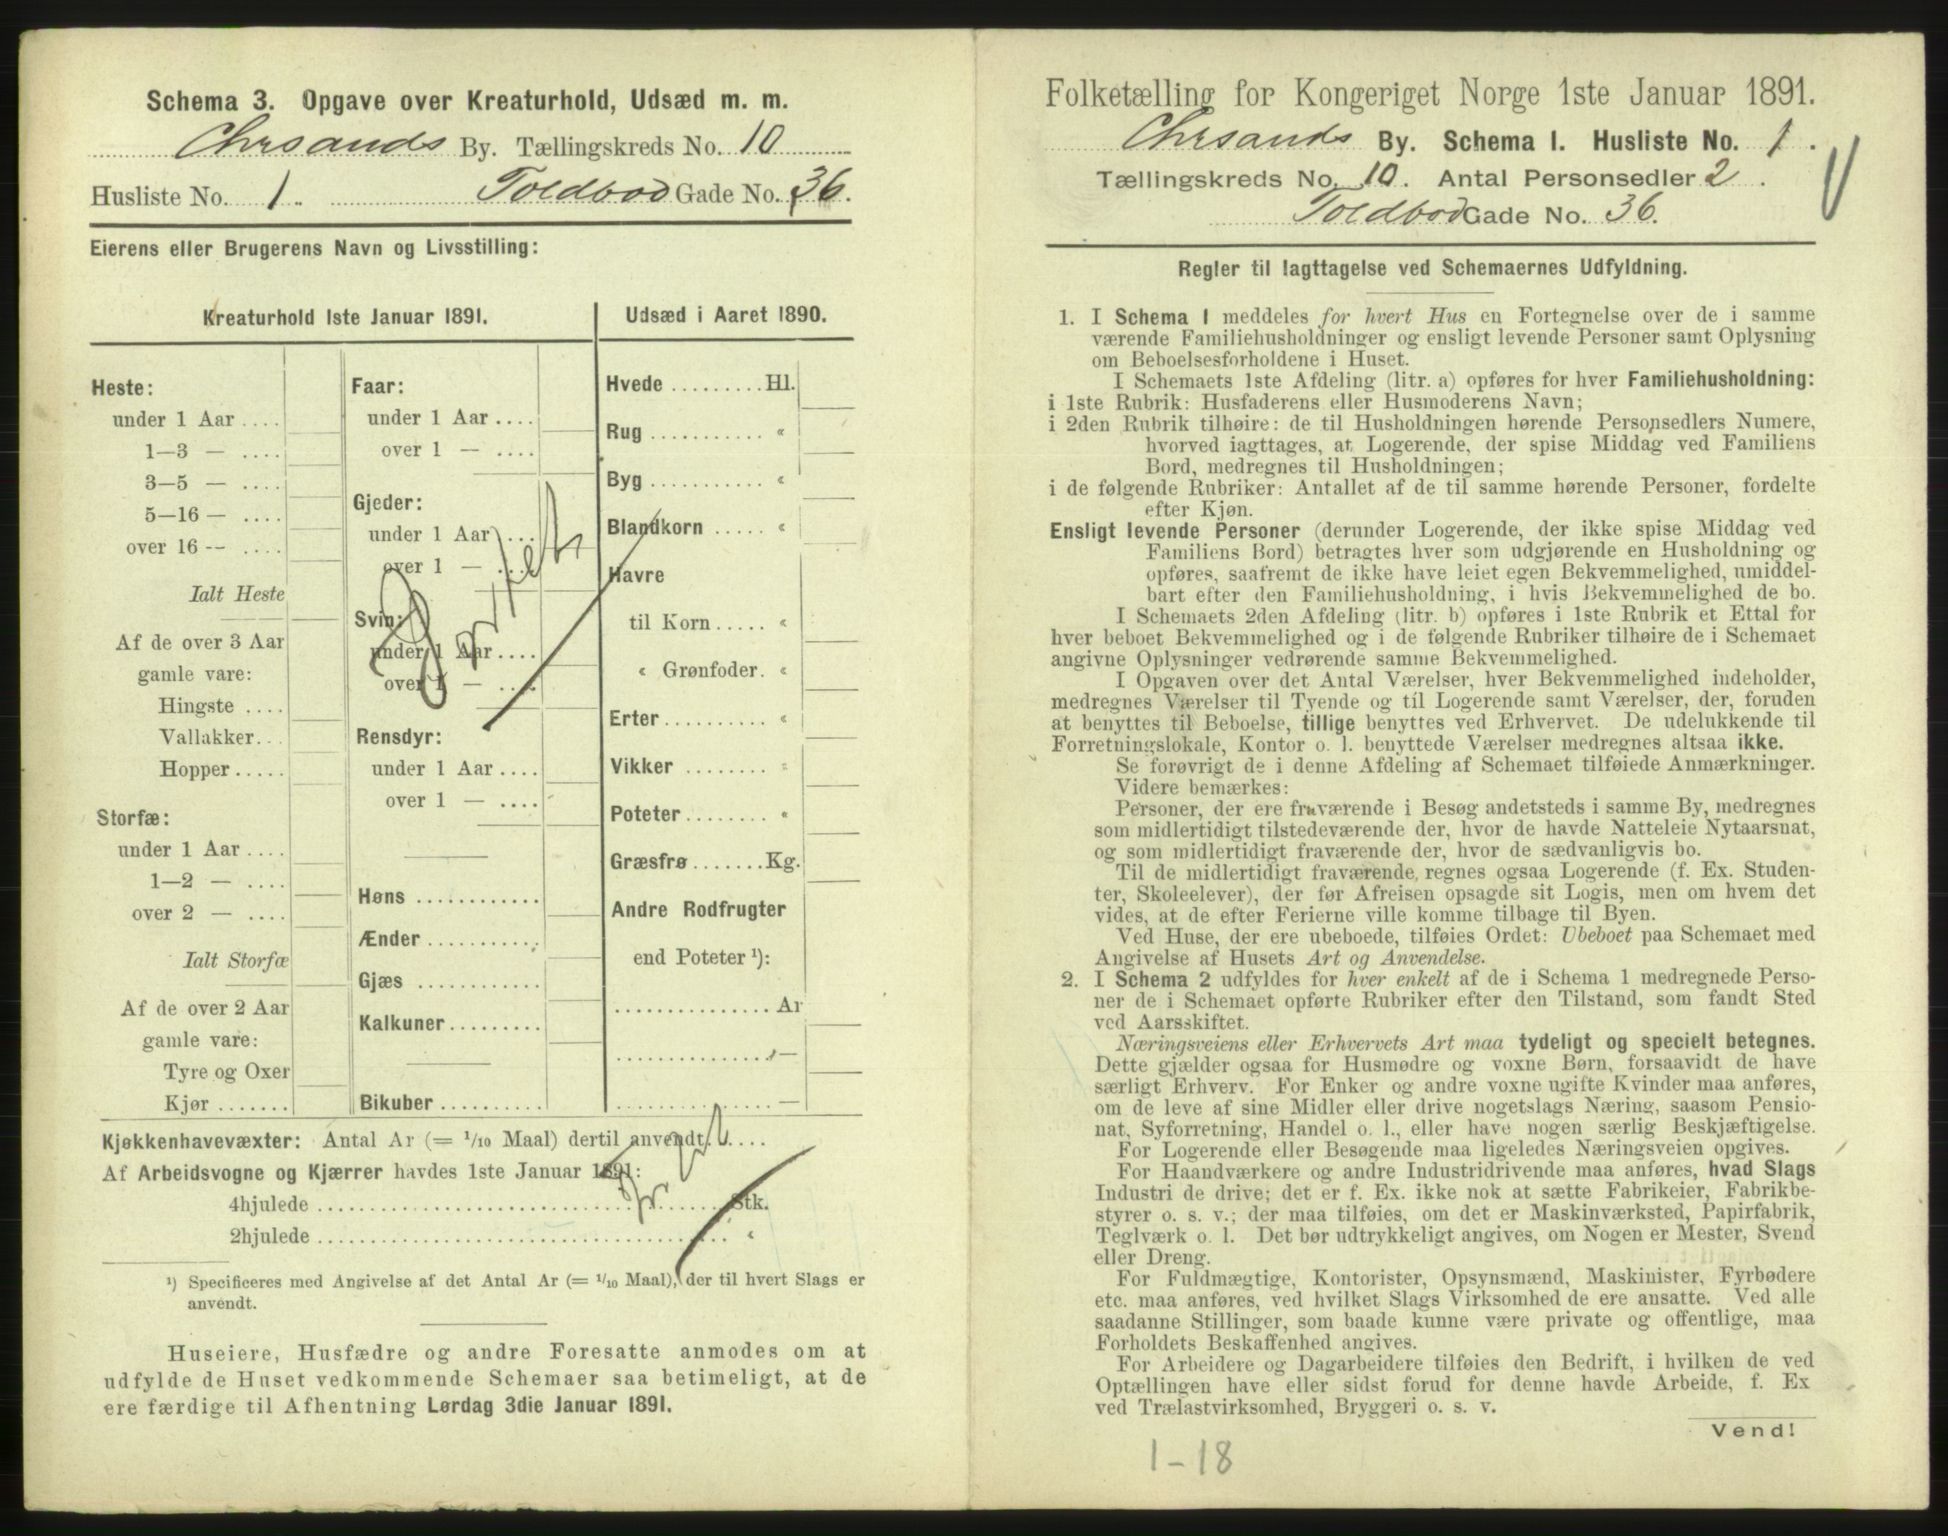 Schema 3. Opgave over Kreaturhold, Udsæd m. m.
Chrsands By. Tællingskreds No. 10
Husliste No. 1. Toldbod Gade No. 36.
Eierens eller Brugerens Navn og Livsstilling:
Kreaturhold 1ste Januar 1891.
Heste:
under 1 Aar ....
1—3 — ....
3—5 — ....
5—16 — ....
over 16 — ....
Ialt Heste
Af de over 3 Aar
gamle vare:
Hingste ....
Vallakker...
Hopper.....
Storfæ:
under 1 Aar ....
1—2 — ....
over 2 — ....
Ialt Storfæ
Af de over 2 Aar
gamle vare:
Tyre og Oxer
Kjør .......
Faar:
under 1 Aar ....
over 1 — ....
Gjeder:
under 1 Aar ....
over 1 — ....
Svin:
under 1 Aar ....
over 1 — ....
Rensdyr:
under 1 Aar ....
over 1 — ....
Høns ............
Ænder...........
Gjæs ............
Kalkuner.........
Bikuber..........
Udsæd i Aaret 1890.
Hvede .........Hl.
Rug ........... «
Byg ........... «
Blandkorn ..... «
Havre
til Korn..... «
« Grønfoder. «
Erter.......... «
Vikker ........ «
Poteter........ «
Græsfrø.......Kg.
Andre Rodfrugter
end Poteter ¹):
...............Ar
...............—
...............—
Kjøkkenhavevæxter: Antal Ar (= 1/10 Maal) dertil anvendt.....
Af Arbeidsvogne og Kjærrer havdes 1ste Januar 1891:
4hjulede ........................................Stk.
2hjulede ........................................ «
¹) Specificeres med Angivelse af det Antal Ar (= 1/10 Maal), der til hvert Slags er
anvendt.
Huseiere, Husfædre og andre Foresatte anmodes om at
udfylde de Huset vedkommende Schemaer saa betimeligt, at de
ere færdige til Afhentning Lørdag 3die Januar 1891.
Folketælling for Kongeriget Norge 1ste Januar 1891.
Chrsands By. Schema I. Husliste No. 1.
Tællingskreds No. 10. Antal Personsedler 2.
Toldbod Gade No. 36.
Regler til Iagttagelse ved Schemaernes Udfyldning.
1. I Schema 1 meddeles for hvert Hus en Fortegnelse over de i samme
værende Familiehusholdninger og ensligt levende Personer samt Oplysning
om Beboelsesforholdene i Huset.
I Schemaets 1ste Afdeling (litr. a) opføres for hver Familiehusholdning:
i 1ste Rubrik: Husfaderens eller Husmoderens Navn;
i 2den Rubrik tilhøire: de til Husholdningen hørende Personsedlers Numere,
hvorved iagttages, at Logerende, der spise Middag ved Familiens
Bord, medregnes til Husholdningen;
i de følgende Rubriker: Antallet af de til samme hørende Personer, fordelte
efter Kjøn.
Ensligt levende Personer (derunder Logerende, der ikke spise Middag ved
Familiens Bord) betragtes hver som udgjørende en Husholdning og
opføres, saafremt de ikke have leiet egen Bekvemmelighed, umiddel-
bart efter den Familiehusholdning, i hvis Bekvemmelighed de bo.
I Schemaets 2den Afdeling (litr. b) opføres i 1ste Rubrik et Ettal for
hver beboet Bekvemmelighed og i de følgende Rubriker tilhøire de i Schemaet
angivne Oplysninger vedrørende samme Bekvemmelighed.
I Opgaven over det Antal Værelser, hver Bekvemmelighed indeholder,
medregnes Værelser til Tyende og til Logerende samt Værelser, der, foruden
at benyttes til Beboelse, tillige benyttes ved Erhvervet. De udelukkende til
Forretningslokale, Kontor o. l. benyttede Værelser medregnes altsaa ikke.
Se forøvrigt de i denne Afdeling af Schemaet tilføiede Anmærkninger.
Videre bemærkes:
Personer, der ere fraværende i Besøg andetsteds i samme By, medregnes
som midlertidigt tilstedeværende der, hvor de havde Natteleie Nytaarsnat,
og som midlertidigt fraværende der, hvor de sædvanligvis bo.
Til de midlertidigt fraværende regnes ogsaa Logerende (f. Ex. Studen-
ter, Skoleelever), der før Afreisen opsagde sit Logis, men om hvem det
vides, at de efter Ferierne ville komme tilbage til Byen.
Ved Huse, der ere ubeboede, tilføies Ordet: Ubeboet paa Schemaet med
Angivelse af Husets Art og Anvendelse.
2. I Schema 2 udfyldes for hver enkelt af de i Schema 1 medregnede Perso-
ner de i Schemaet opførte Rubriker efter den Tilstand, som fandt Sted
ved Aarsskiftet.
Næringsveiens eller Erhvervets Art maa tydeligt og specielt betegnes.
Dette gjælder ogsaa for Husmødre og voxne Børn, forsaavidt de have
særligt Erhverv. For Enker og andre voxne ugifte Kvinder maa anføres,
om de leve af sine Midler eller drive nogetslags Næring, saasom Pensio-
nat, Syforretning, Handel o. l., eller have nogen særlig Beskjæftigelse.
For Logerende eller Besøgende maa ligeledes Næringsveien opgives.
For Haandværkere og andre Industridrivende maa anføres, hvad Slags
Industri de drive; det er f. Ex. ikke nok at sætte Fabrikeier, Fabrikbe-
styrer o. s. v.; der maa tilføies, om det er Maskinværksted, Papirfabrik,
Teglværk o. l. Det bør udtrykkeligt angives, om Nogen er Mester, Svend
eller Dreng.
For Fuldmægtige, Kontorister, Opsynsmænd, Maskinister, Fyrbødere
etc. maa anføres, ved hvilket Slags Virksomhed de ere ansatte. Ved alle
saadanne Stillinger, som baade kunne være private og offentlige, maa
Forholdets Beskaffenhed angives.
For Arbeidere og Dagarbeidere tilføies den Bedrift, i hvilken de ved
Optællingen have eller sidst forud for denne havde Arbeide, f. Ex
ved Trælastvirksomhed, Bryggeri o. s. v.
Vend!
1-18